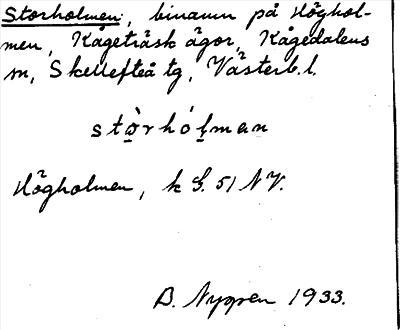 Storholmen, binamn på Höghol-
men, Kågeträsk ägor, Kågedalens
sn, Skellefteå tg, Västerb. l.
stò̱rhóḻman
Högholmen, k G. 51 NV.
B. Nygren 1933.